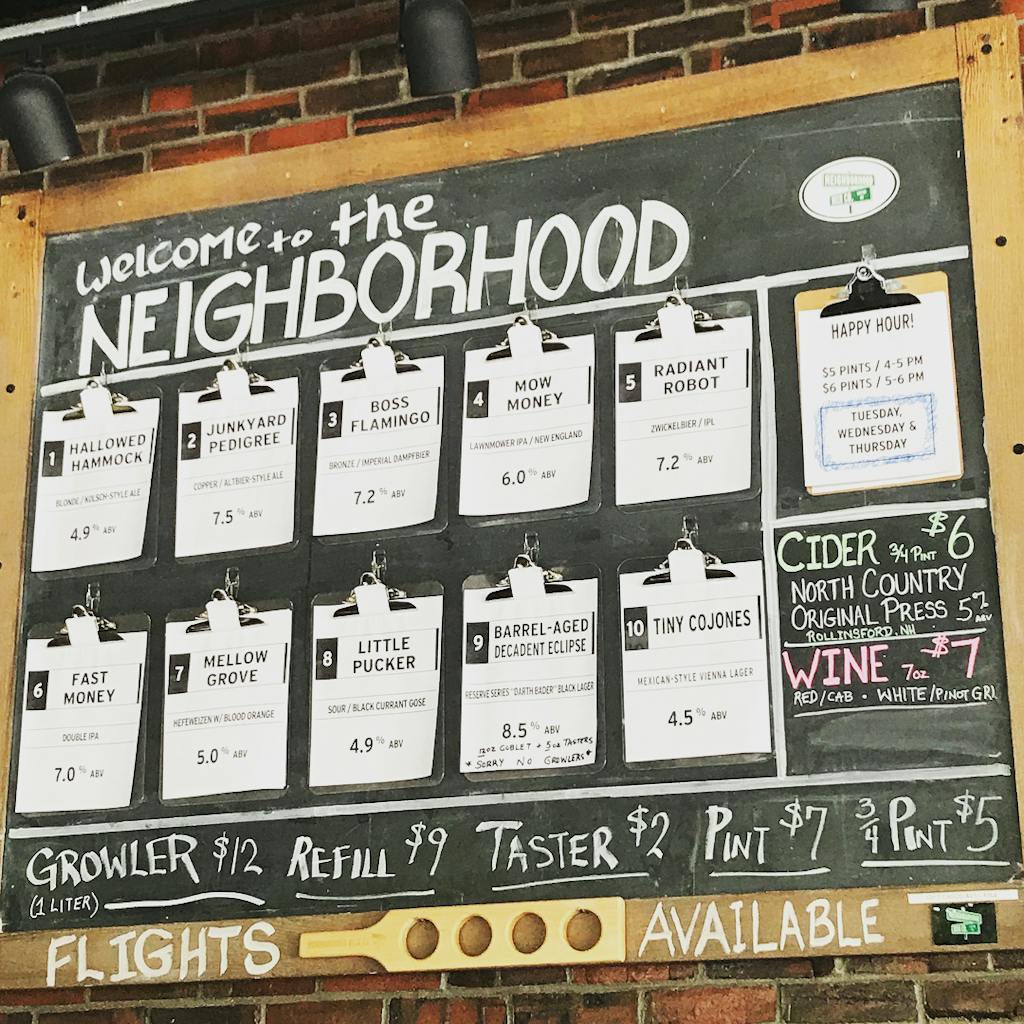 Welcome to the
NEIGHBORHOOD
NEIGHBORHOOD
1 HALLOWED
HAMMOCK
BLONDE / KOLSCH-STYLE ALE
4.9% ABV
2 JUNKYARD
PEDIGREE
COPPER / ALTBIER-STYLE ALE
7.5% ABV
3 BOSS
FLAMINGO
BRONZE / IMPERIAL DAMPFBIER
7.2% ABV
4 MOW
MONEY
LAWNMOWER IPA / NEW ENGLAND
6.0% ABV
5 RADIANT
ROBOT
ZWICKELBIER / IPL
7.2% ABV
HAPPY HOUR!
$5 PINTS / 4-5 PM
$6 PINTS / 5-6 PM
TUESDAY,
WEDNESDAY &
THURSDAY
6 FAST
MONEY
DOUBLE IPA
7.0% ABV
7 MELLOW
GROVE
HEFEWEIZEN W/ BLOOD ORANGE
5.0% ABV
8 LITTLE
PUCKER
SOUR / BLACK CURRANT GOSE
4.9% ABV
9 BARREL-AGED
DECADENT ECLIPSE
RESERVE SERIES "DARTH BADER" BLACK LAGER
8.5% ABV
12oz GOBLET + 5oz TASTERS
* SORRY NO GROWLERS *
10 TINY COJONES
MEXICAN-STYLE VIENNA LAGER
4.5% ABV
CIDER 3/4 PINT $6
NORTH COUNTRY
ORIGINAL PRESS 5% ABV
ROLLINSFORD, NH
WINE 7oz $7
RED/CAB • WHITE/PINOT GRI
GROWLER $12 REFILL $9 TASTER $2 PINT $7 3/4 PINT $5
(1 LITER)
FLIGHTS AVAILABLE